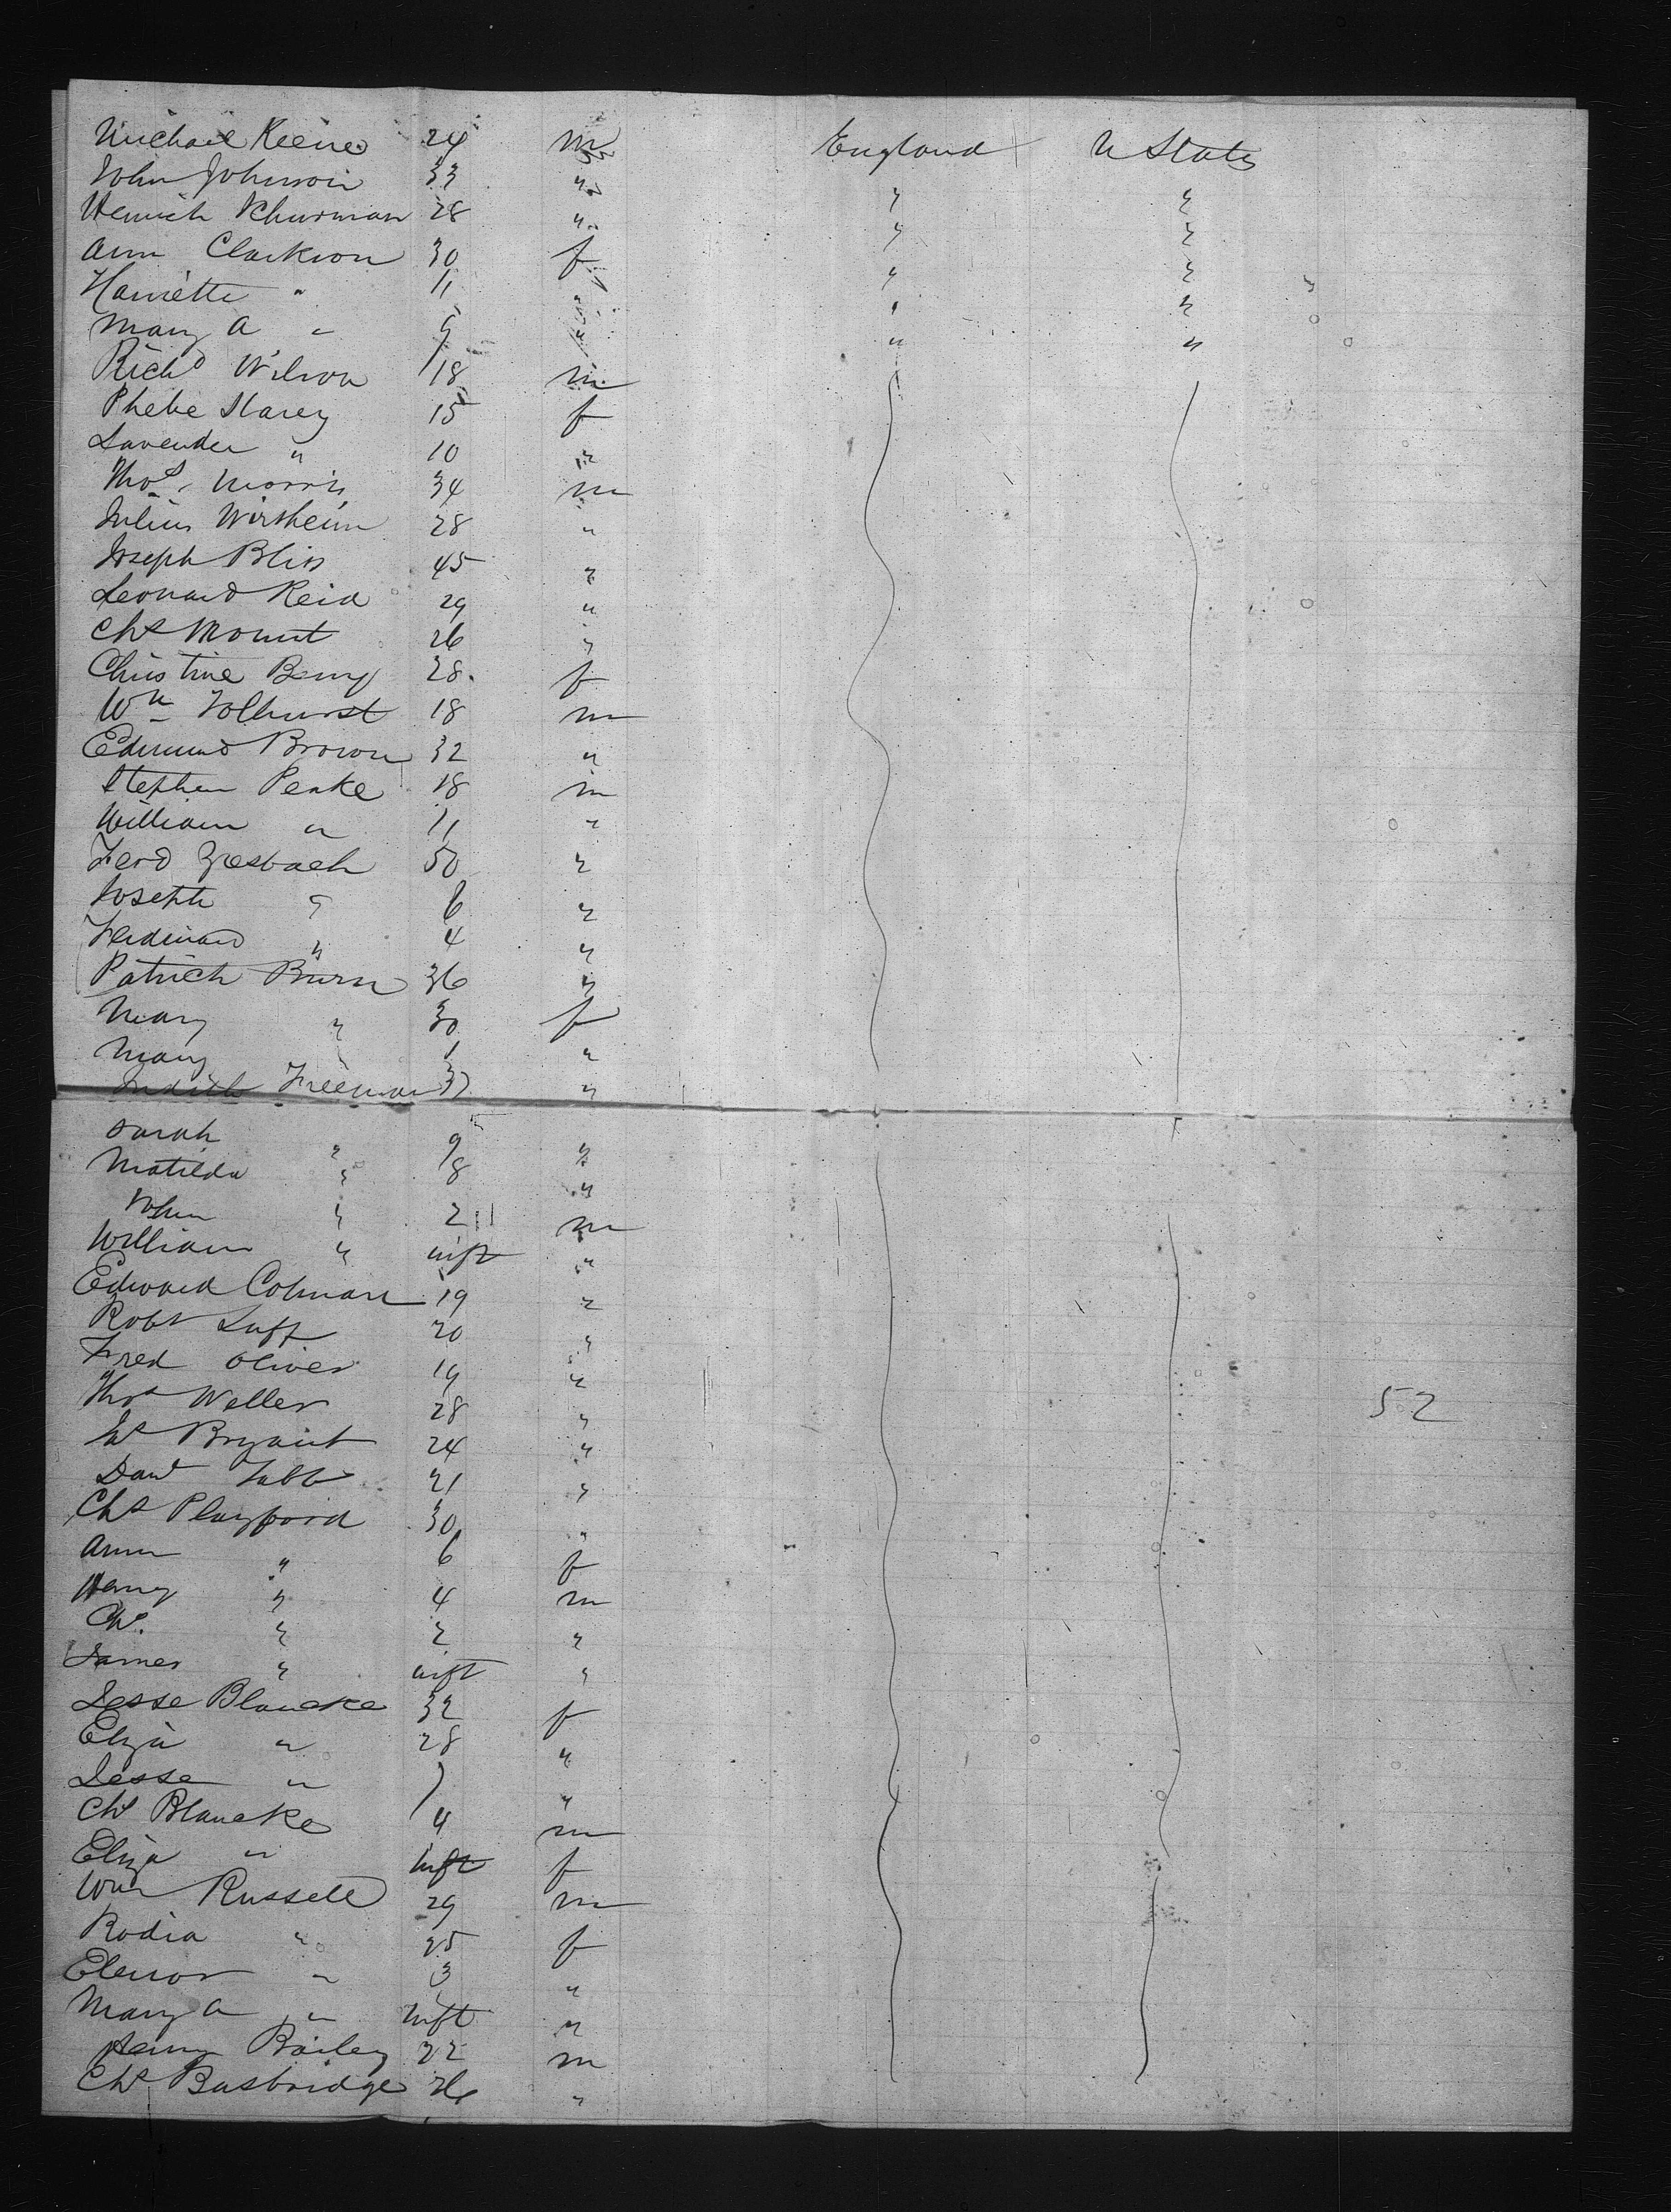 Michael Keene 24 m England U States
John Johnson 33 " " "
Heinrich Khurman 28 " " "
Ann Clarkson 30 f " "
Harriette " 11 " " "
Mary A " 9 " " "
Richd Wilson 18 m
Phebe Starey 15 f
Lavender " 10 "
Thos. Morris 34 m
Julius Wirsheim 28 "
Joseph Bliss 45 "
Leonard Reid 29 "
Chs Mount 26 "
Christine Berny 28 f
Wm Tolhurst 18 m
Edmund Brown 32 "
Stephen Peake 18 m
William " 11 "
Ferd Griesbach 50 "
Joseph " 6 "
Ferdinand " 4 "
Patrick Burn 36 "
Mary " 30 f
Mary 1 "
Judith Freeman 37 "
Sarah " 9 "
Matilda " 8 "
John " 2 m
William " inft "
Edward Colman 19 "
Robt Luff 20 "
Fred Oliver 19 "
Thos Weller 28 " 52
Js Bryant 24 "
Danl Tubb 21 "
Chs Playford 30 "
Ann " 6 f
Henry " 4 m
Chs. " 2 "
James " inft "
Jesse Blancke 32 f
Eliza " 28 "
Jesse " 7 "
Chs Blancke 4 m
Eliza " inft f
Wm Russell 29 m
Rodia " 25 f
Elenor " 3 "
Mary A " inft "
Henry Bailey 22 m
Chs Busbridge 26 "